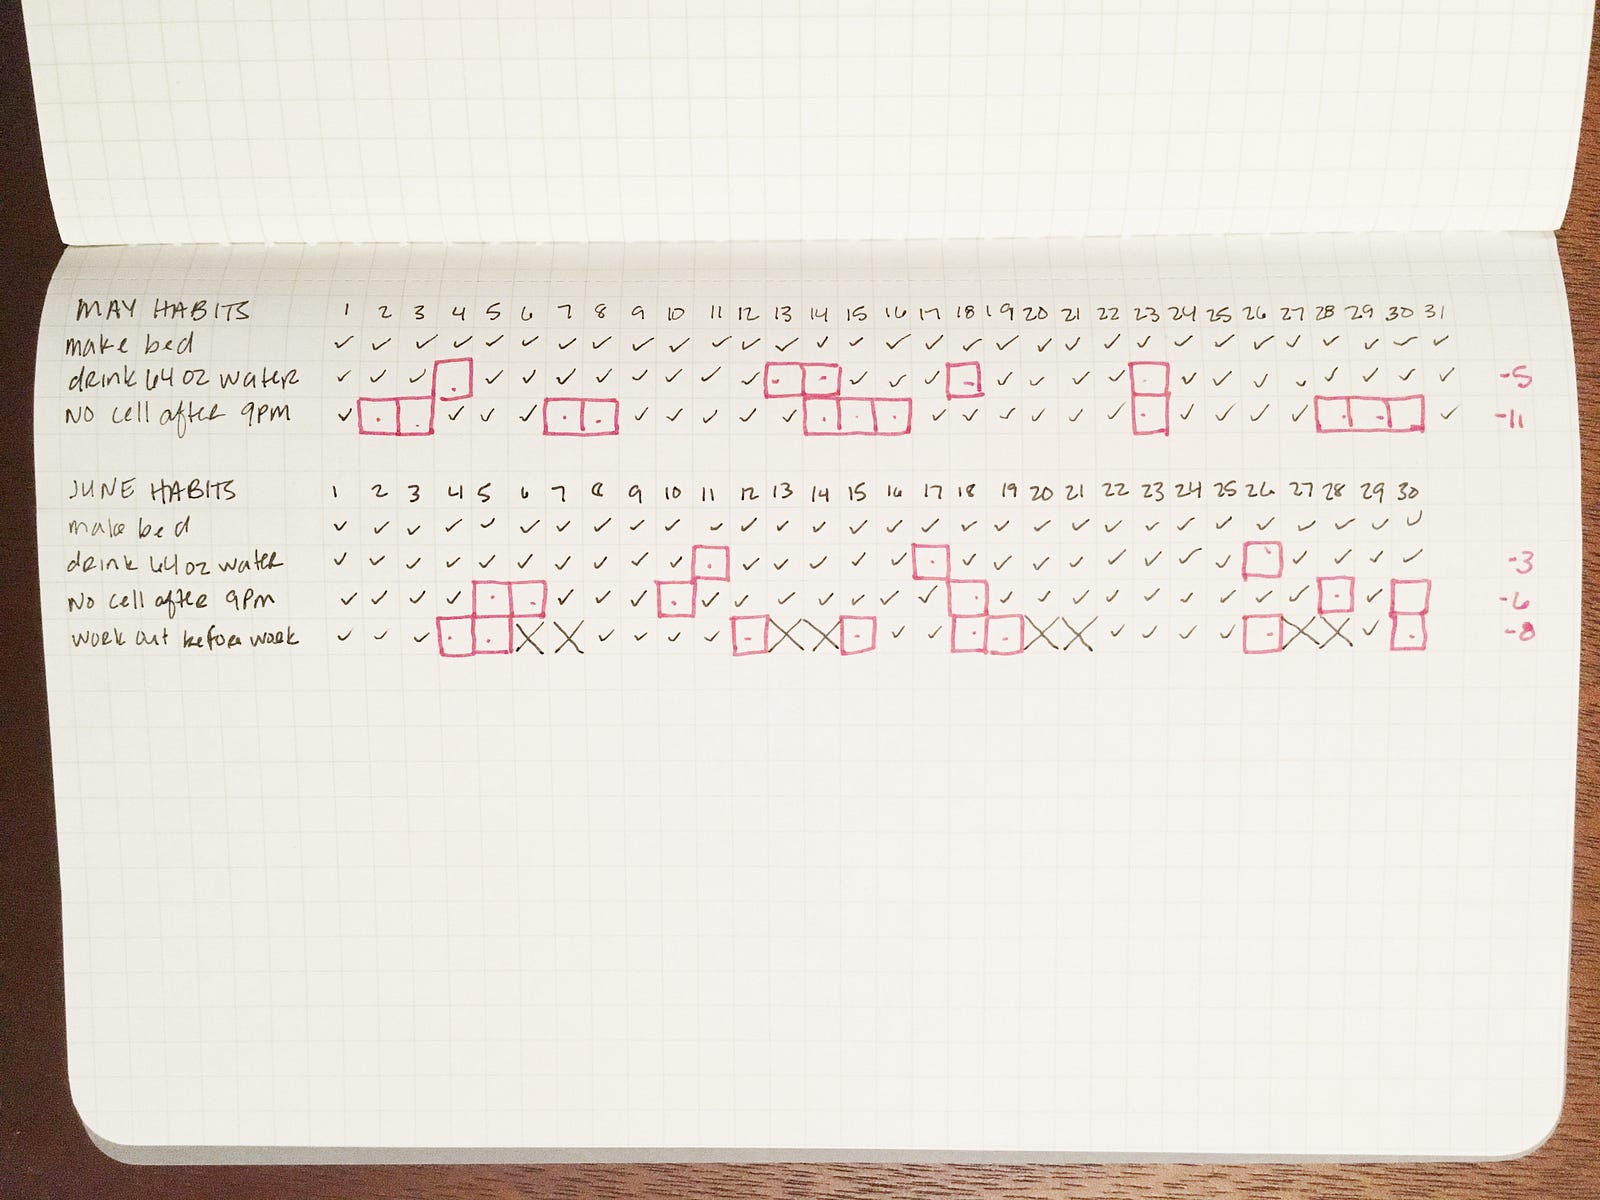 MAY HABITS 1 2 3 4 5 6 7 8 9 10 11 12 13 14 15 16 17 18 19 20 21 22 23 24 25 26 27 28 29 30 31
make bed ✓ ✓ ✓ ✓ ✓ ✓ ✓ ✓ ✓ ✓ ✓ ✓ ✓ ✓ ✓ ✓ ✓ ✓ ✓ ✓ ✓ ✓ ✓ ✓ ✓ ✓ ✓ ✓ ✓ ✓ ✓
drink 64 oz water ✓ ✓ ✓ · ✓ ✓ ✓ ✓ ✓ ✓ ✓ ✓ · · ✓ ✓ ✓ · ✓ ✓ ✓ ✓ · ✓ ✓ ✓ ✓ ✓ ✓ ✓ ✓ -5
No cell after 9pm ✓ · · ✓ ✓ ✓ · · ✓ ✓ ✓ ✓ ✓ · · · ✓ ✓ ✓ ✓ ✓ ✓ · ✓ ✓ ✓ ✓ · · · ✓ -11
JUNE HABITS 1 2 3 4 5 6 7 8 9 10 11 12 13 14 15 16 17 18 19 20 21 22 23 24 25 26 27 28 29 30
make bed ✓ ✓ ✓ ✓ ✓ ✓ ✓ ✓ ✓ ✓ ✓ ✓ ✓ ✓ ✓ ✓ ✓ ✓ ✓ ✓ ✓ ✓ ✓ ✓ ✓ ✓ ✓ ✓ ✓ ✓
drink 64 oz water ✓ ✓ ✓ ✓ ✓ ✓ ✓ ✓ ✓ ✓ · ✓ ✓ ✓ ✓ ✓ · ✓ ✓ ✓ ✓ ✓ ✓ ✓ ✓ · ✓ ✓ ✓ ✓ -3
No cell after 9pm ✓ ✓ ✓ ✓ · · ✓ ✓ ✓ · ✓ ✓ ✓ ✓ ✓ ✓ ✓ · ✓ ✓ ✓ ✓ ✓ ✓ ✓ ✓ ✓ · ✓ -6
work out before work ✓ ✓ ✓ · · X X ✓ ✓ ✓ ✓ · X X · ✓ ✓ · · X X ✓ ✓ ✓ ✓ · X X ✓ · -8